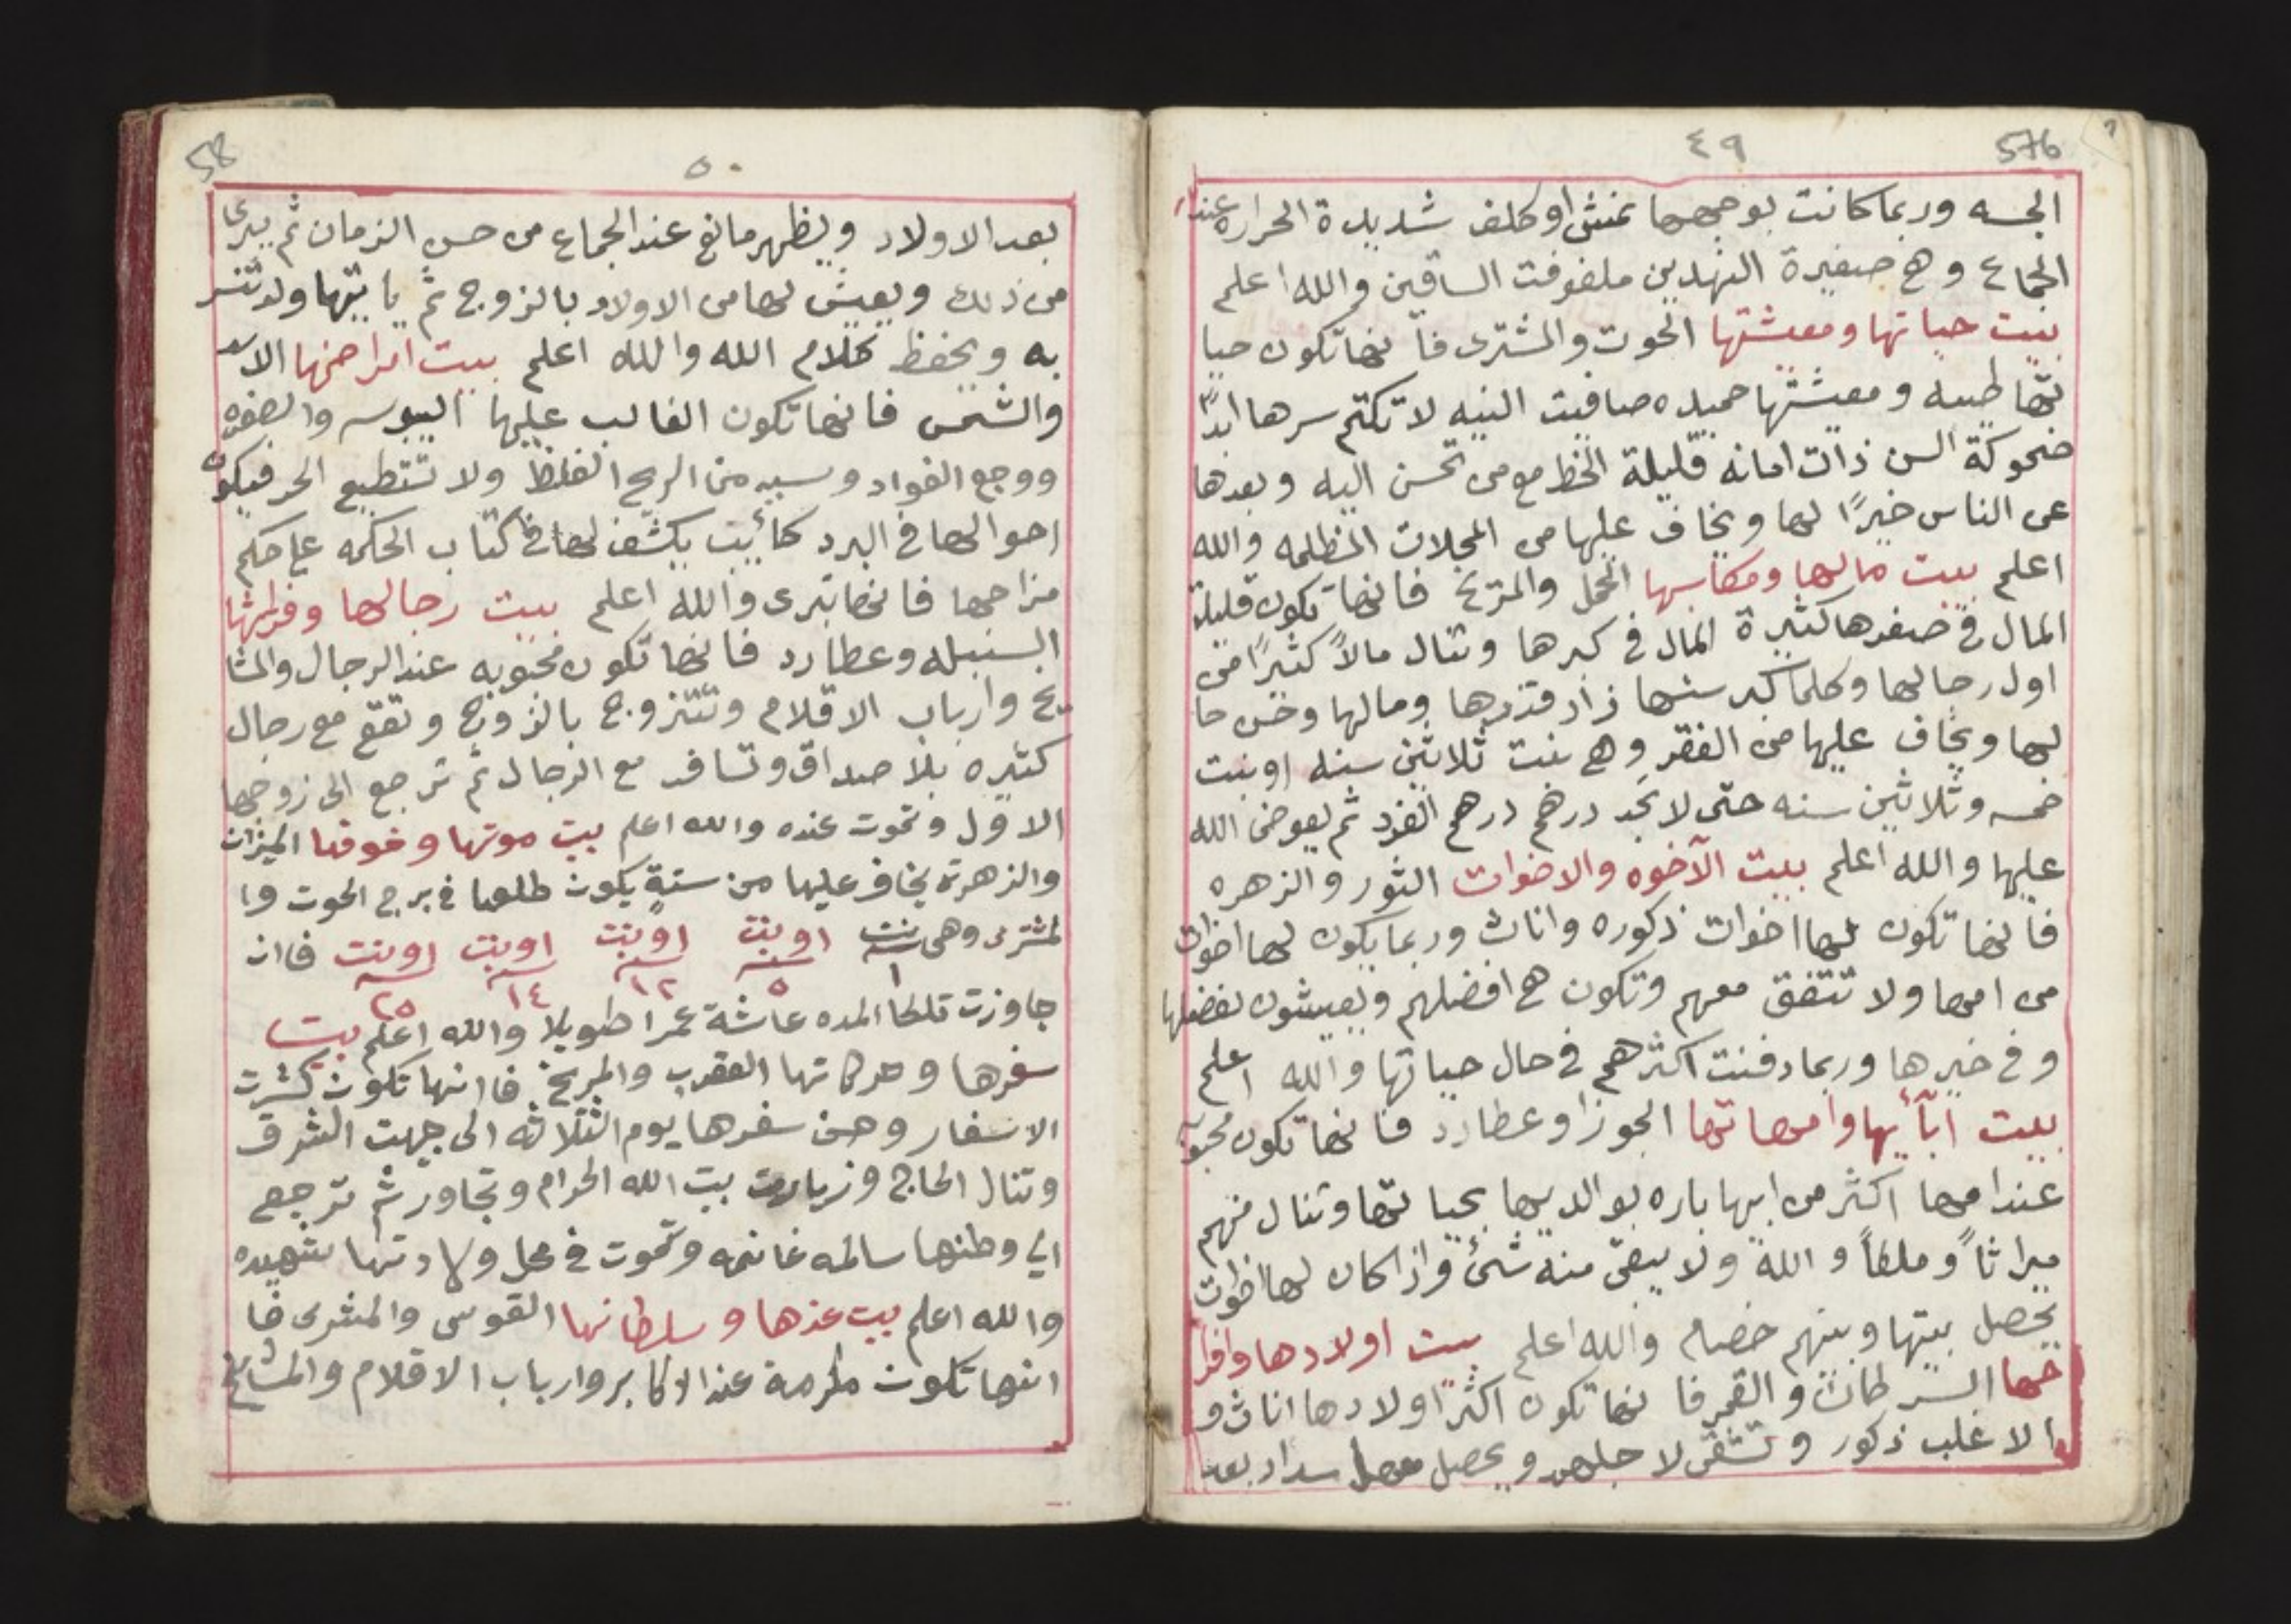 ٤٩
576
الجسه وربما كانت بوجهها نمش او كلف شديدة الحراره عند
الجماع وهي صغيرة النهدين ملفوفت الساقين والله اعلم
بيت حياتها ومعيشتها الحوت والمشترى فأ نها تكون حيا
تها طيبه ومعيشتها حميده صافيت النيه لا تكتم سرها ابدًا
ضحوكة السن ذات امانه قليلة الحظ مع من تحسن اليه وبعدها
عن الناس خيرًا لها ويخاف عليها من المحلات المظلمه والله
اعلم بيت مالها ومكاسبها الحمل والمريخ فانها تكون قليلة
المال في صغرها كثيرة المال في كبرها وتنال مالاً كثيرًا من
اول رجالها وكلما كبر سنها زاد قدرها ومالها وحسن حا
لها ويخاف عليها من الفقر وهي بنت ثلاثين سنه او بنت
خمسه وثلاثين سنه حتى لا تجد درهم درهم الفرد ثم يعوض الله
عليها والله اعلم بيت الآخوه والاخوات الثور والزهره
فأ نها تكون لها اخوات ذكوره واناث وربما يكون لها اخوات
من امها ولا تتفق معهم وتكون هي افضلهم ويعيشون بفضلها
وفي خيرها وربما دفنت اكثرهم في حال حياتها والله اعلم
بيت اباأيها وامهاتها الجوزا وعطارد فانها تكون محبوبة
عند امها اكثر من ابيها باره بوالديها بحيا تها وتنال منهم
ميراثاً وملكاً والله ولا يبقى منه شئ واذا كان لها اخوات
يحصل بينها وبينهم خصام والله اعلم بيت اولادها وافرا
حها السرطان والقمر فا نها تكون اكثر اولادها اناث و
الاغلب ذكور وتشقى لاجلهم ويحصل بعد
٥٠
58
بعد الاولاد ويظهر مانع عند الجماع من حسن الزمان ثم يبرى
من ذلك ويعيش لها من الاولاد بالزوج ثم يا تيها ولد تنسر
به ويحفظ كلام الله والله اعلم بيت امراضها الاسد
والشمس فانها تكون الغالب عليها اليبوسه والصفره
ووجع الفواد وسببه من الريح الغلظ ولا تتطيع الحر فيكون
احوالها في البرد كأئبت يكشف لها في كتاب الحكمه على حكم
مزاجها فانها تبرى والله اعلم بيت رجالها وفراشها
السنبله وعطارد فانها تكون محبوبه عند الرجال والمشا
يخ وارباب الاقلام وتتزوج بالزوج وتقع مع رجال
كثيره بلا صداق وتسافر مع الرجال ثم ترجع الى زوجها
الاول وتموت عنده والله اعلم بيت موتها وخوفها الميزان
والزهرة يخاف عليها من سنةٍ يكون طلعها في برج الحوت وا
لمشترى وهى بنت او بنت او بنت او بنت او بنت فان
١ ٥ ١٢ ١٤ ٢٥
جاوزت تلكا المده عاشة عمرا طويلا والله اعلم بيت
سفرها وحركاتها العقرب والمريخ فا انها تكون كثرت
الاسفار وحسن سفرها يوم الثلاثه الى جهت الشرق
وتنال الحاج وزيارت بيت الله الحرام وتجاور ثم ترجع
الي وطنها سالمه غانمه وتموت في محل ولادتها شهيده
والله اعلم بيت عزها وسلطانها القوس والمشرى فا
انها تكون مكرمة عند الاكابر وارباب الاقلام والمشايخ